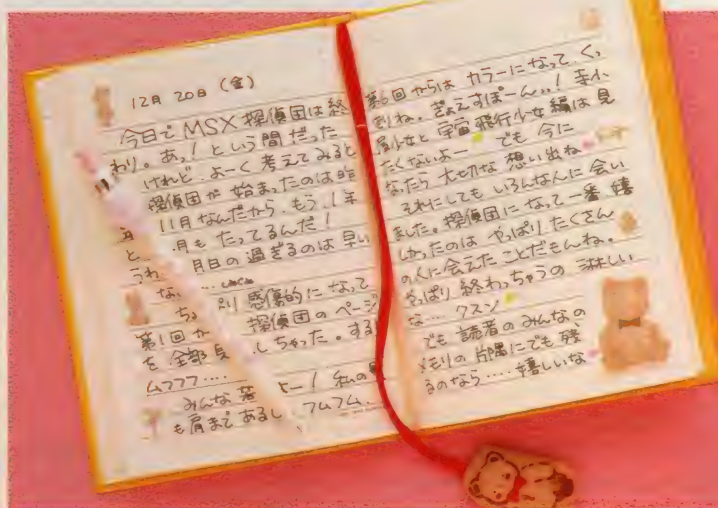 12月 20日 (金)
今日で MSX 探偵団は終
わり。あっ!という間だった
けれど、よーく 考えてみると
探偵団が 始まったのは昨
年 11月なんだから、もう、1年
と 月も たってるんだ!
うわ 月日の 過ぎるのは 早い
な、
ち り 感傷的に なって
第1回か 探偵団の ページ
を 全部 見 しちゃった。する
ムフフフ……
みんな 若 よー! 私の
も肩まで あるし フムフム…
第6回からは カラーになって
刻ね。ぎょえてすぽーん、、!
少女と 宇宙飛行少女 編は 見
たくないよー でも 今に
なったら 大切な 想い出ね
それにしても いろんな人に 会い
ました。探偵団に なって 一番 嬉
しかったのは やっぱり たくさん
の人に会えた ことだもんね。
やっぱり 終わっちゃうの 淋しい
な…… クスン
でも 読者の みんなの
メモリの 片隅にでも 残
るのなら…… 嬉しいな